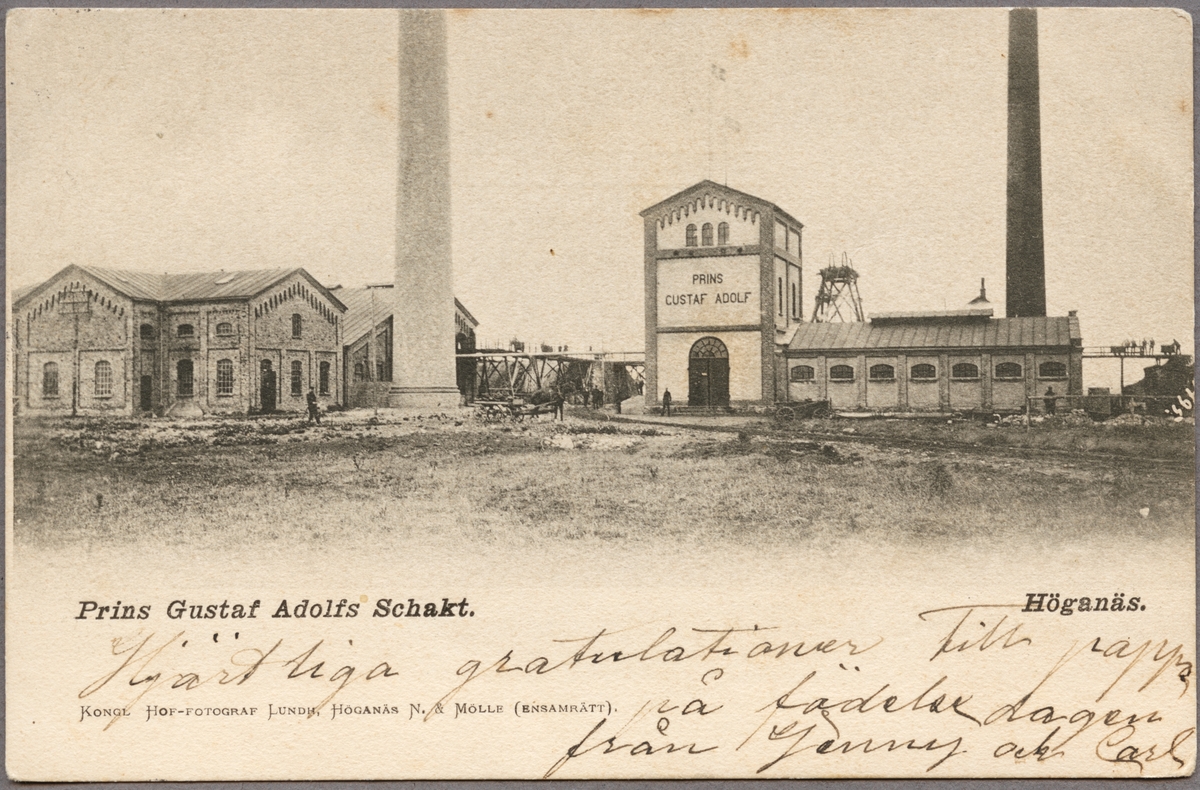 PRINS
GUSTAF ADOLF
Prins Gustaf Adolfs Schakt.
Höganäs.
Hjärtliga gratulationer Till pappa
KONGL HOF-FOTOGRAF LUNDH, HÖGANÄS N. & MÖLLE (ENSAMRÄTT).
på födelsedagen
från Jenny och Carl